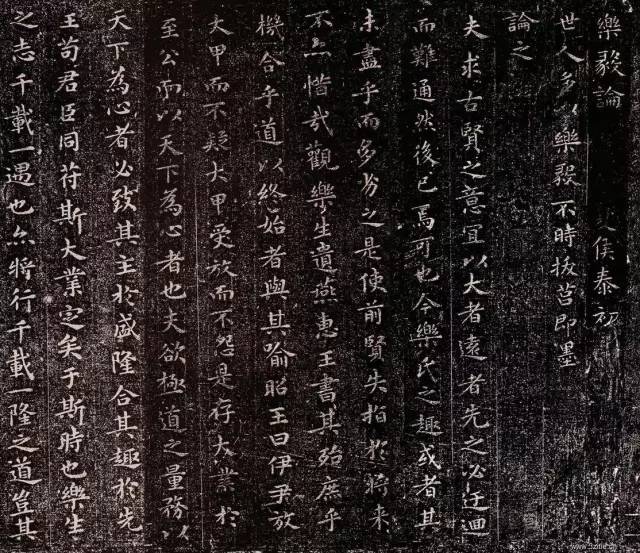 樂毅論
侯泰初
世人多以樂毅不時拔莒即墨
論之
夫求古賢之意宜以大者遠者先之必迂迴
而難通然後已焉可也今樂氏之趣或者其
未盡乎而多劣之是使前賢失指於將來
不亦惜哉觀樂生遺燕惠王書其殆庶乎
機合乎道以終始者與其喻昭王曰伊尹放
大甲而不疑大甲受放而不怨是存大業於
至公而以天下為心者也夫欲極道之量務以
天下為心者必致其主於盛隆合其趣於先
王苟君臣同符斯大業定矣于斯時也樂生
之志千載一遇也亦將行千載一隆之道豈其